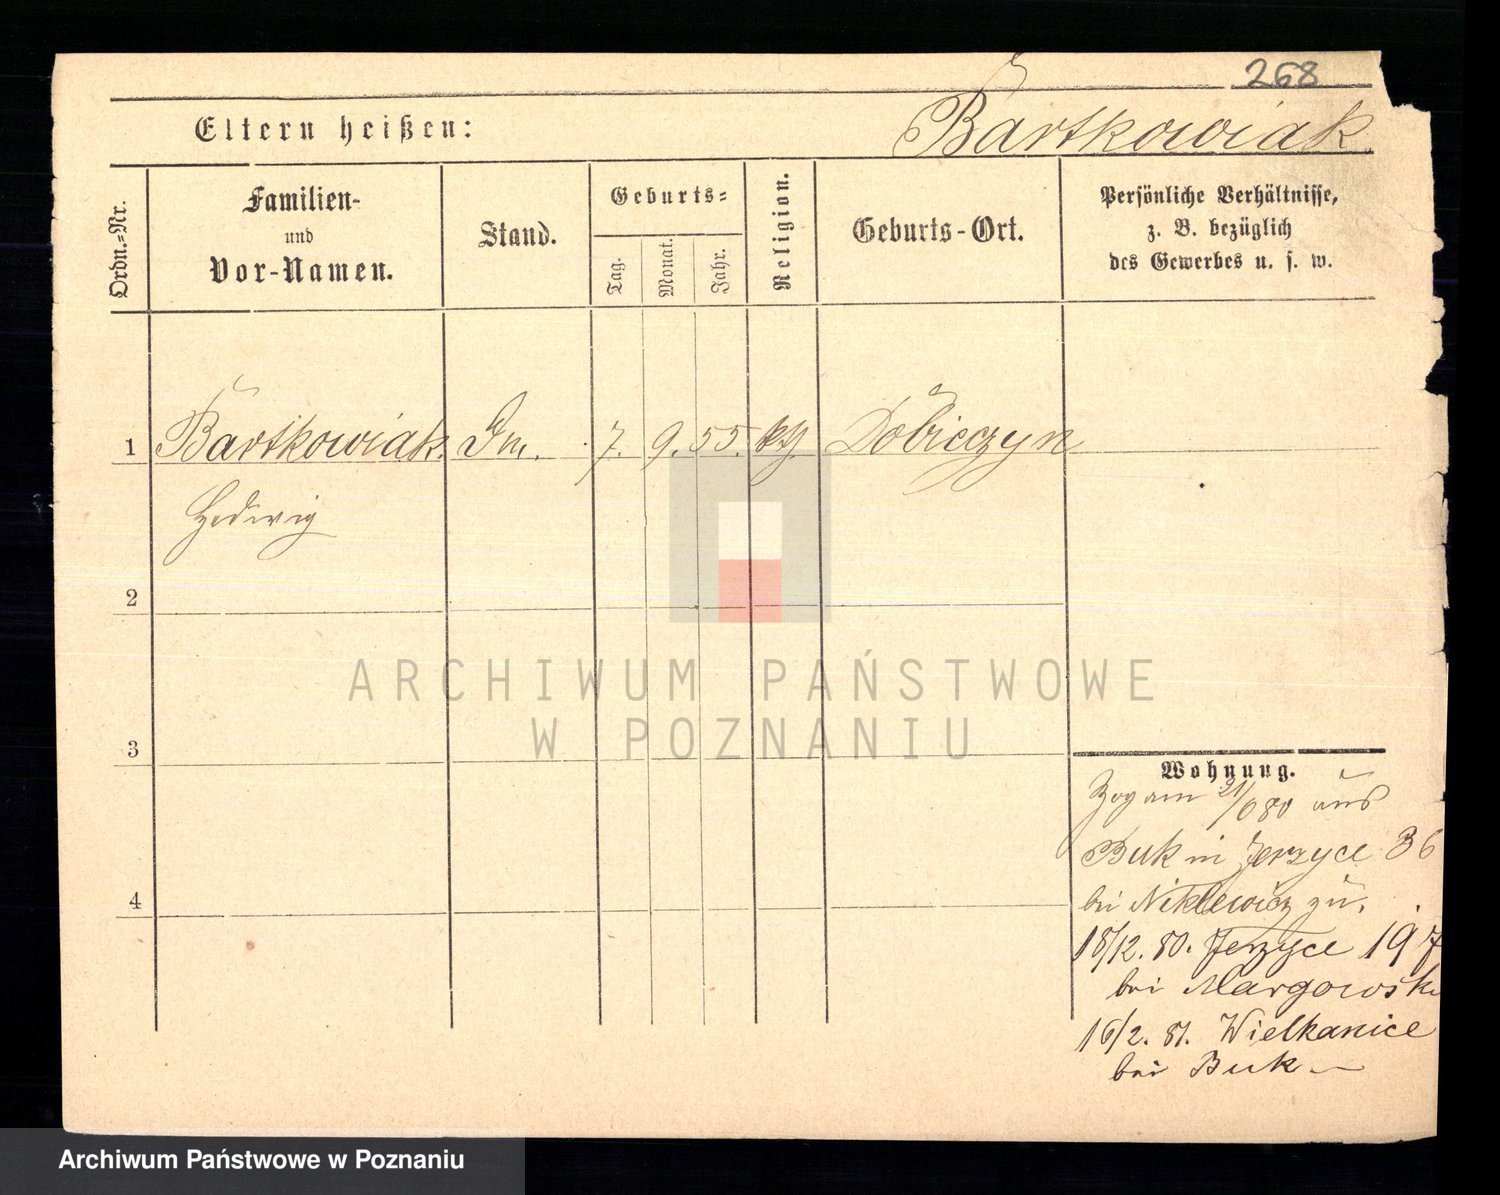 268
Eltern heißen:
Bartkowiak
Ordn.-Nr.
Familien-
und
Vor-Namen.
Stand.
Geburts-
Tag.
Monat.
Jahr.
Religion.
Geburts-Ort.
Persönliche Verhältnisse,
z. B. bezüglich
des Gewerbes u. s. w.
1 Bartkowiak 7. 9. 55. Dobieczyn
Hedwig
2
3
4
ARCHIWUM PAŃSTWOWE
W POZNANIU
Wohnung.
Zog am 80 aus
Buk in Jerzyce 36
bei Niklewicz zu.
18/12. 80. Jerzyce 197
bei Margowsk
16/2. 81. Wielkanice
bei Buk
Archiwum Państwowe w Poznaniu